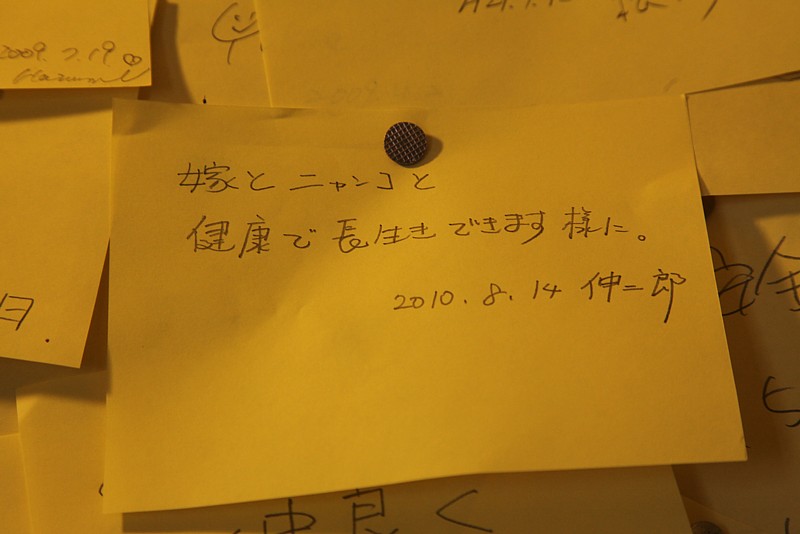 2009.7.19
嫁とニャンコと
健康で長生きできます様に。
2010.8.14 伸二郎
日.
仲良く